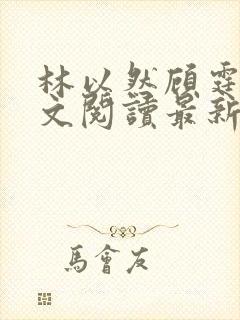 林以然顾霆
文閱讀最新
馬會友